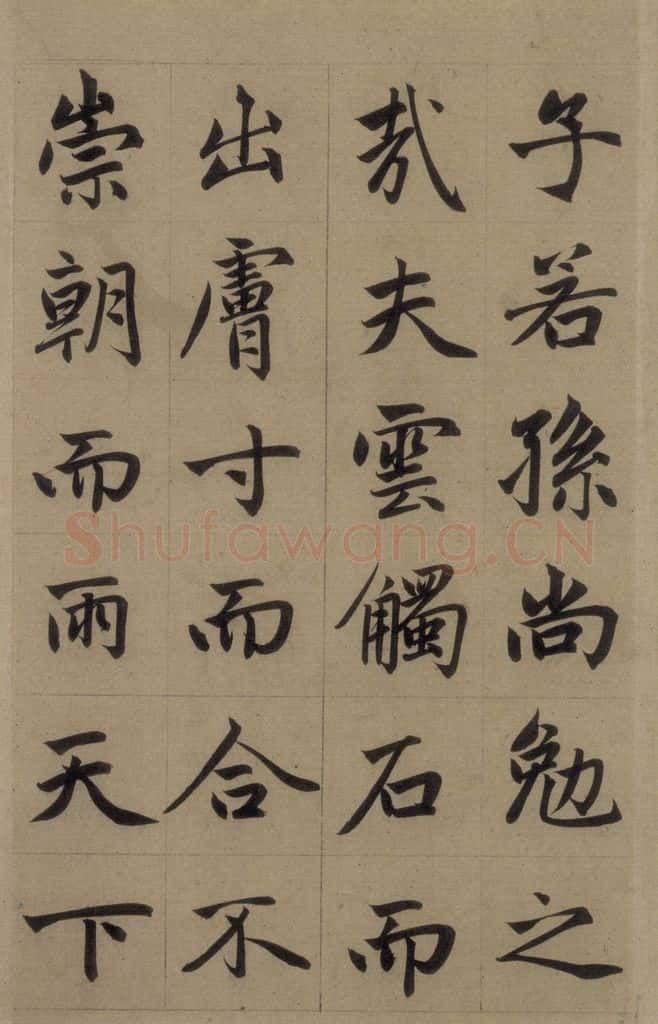 子若孫尚勉之
哉夫雲觸石而
出膚寸而合不
崇朝而雨天下
Shufawang.CN